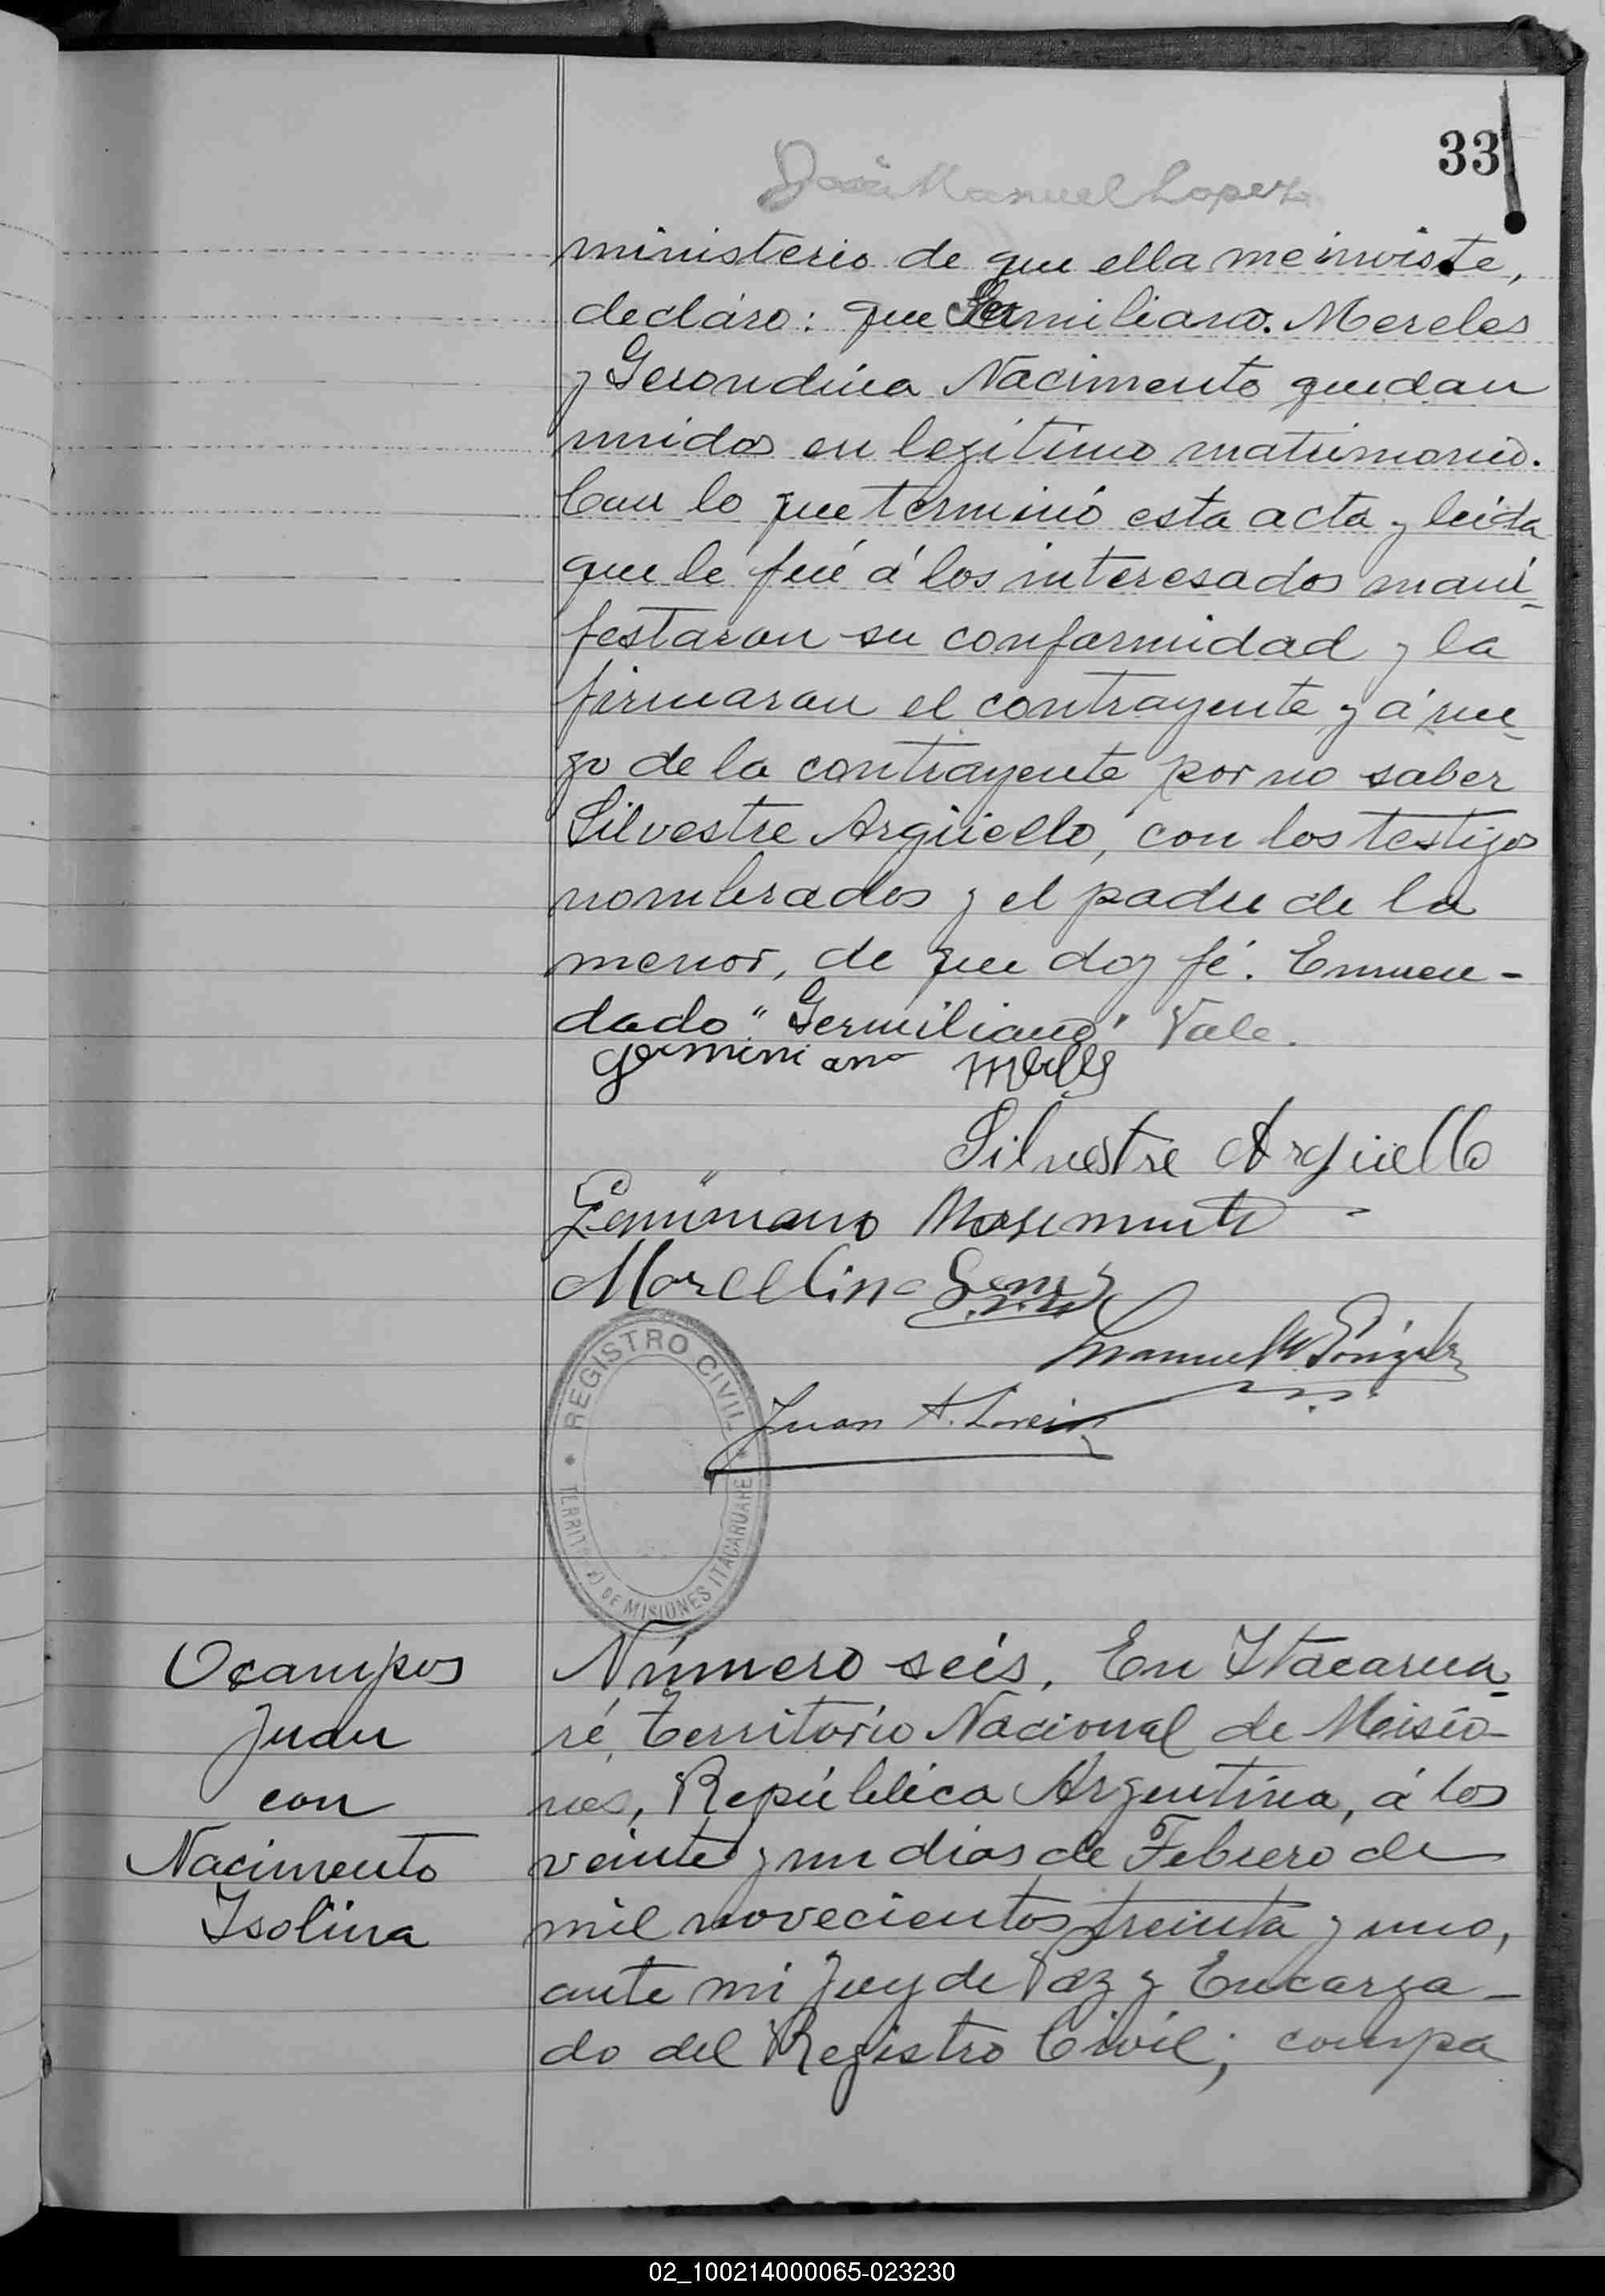 33
José Manuel Lopez
ministerio de que ella me inviste,
decláro: que Germiliano Mereles
y Gerondina Nacimento quedan
unidos en legítimo matrimonio.
Con lo que terminó esta acta y leida
que le fué á los interesados mani-
festaron su conformidad y la
firmaron el contrayente y á rue-
go de la contrayente por no saber
Silvestre Argüello, con los testigos
nombrados y el padre de la
menor, de que doy fé. Enmen-
dado "Germiliano" Vale.
Germiniano
Silvestre Argüello
Marcelino
Manuel
Juan A.
REGISTRO CIVIL
TERRITORIO DE MISIONES ITACARUARE
Ocampos
Juan
con
Nacimento
Isolina
Número seis. En Itacarua-
ré, Territorio Nacional de Misio-
nes, República Argentina, á los
veinte y un dias de Febrero de
mil novecientos treinta y uno,
ante mi Juez de Paz y Encarga-
do del Registro Civil; compa
02_100214000065-023230